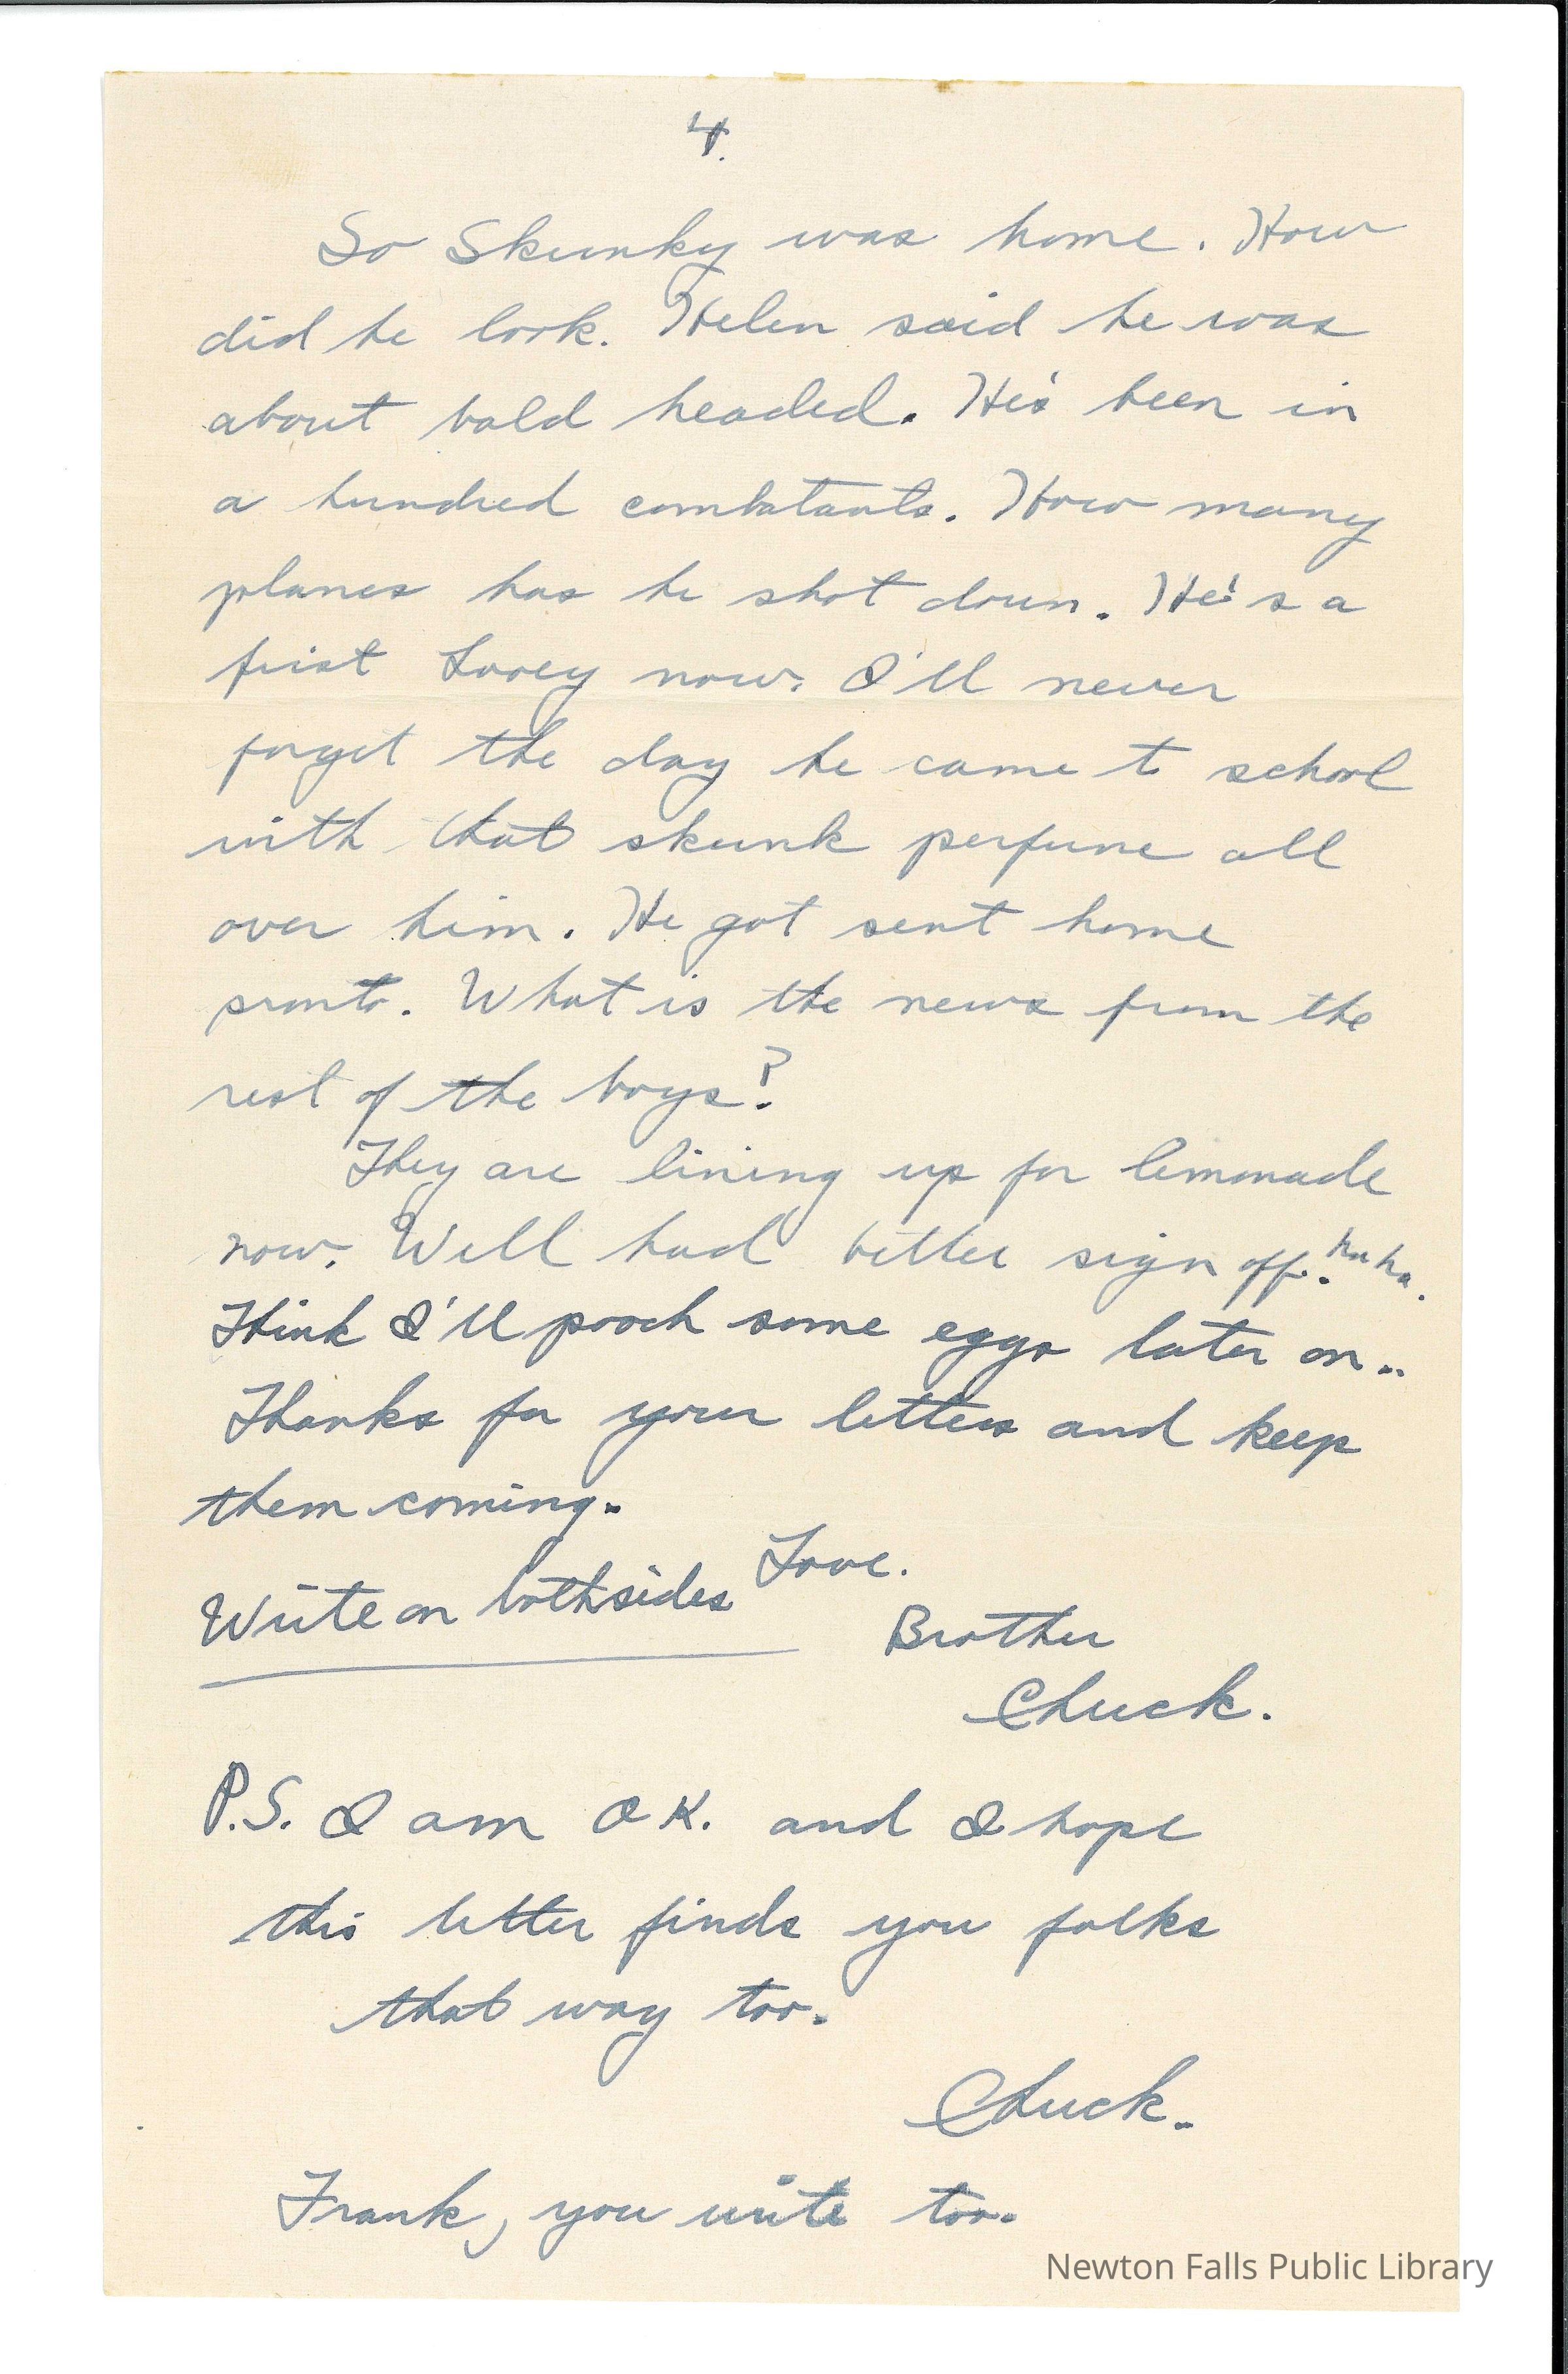 4.
So Skunky was home. How
did he look. Helen said he was
about bald headed. He's been in
a hundred combatants. How many
planes has he shot down. He's a
first Looey now. I'll never
forget the day he came to school
with that skunk perfume all
over him. He got sent home
pronto. What is the news from the
rest of the boys?
They are lining up for lemonade
now. Well had better sign off. ha ha.
Think I'll pooch some eggs later on..
Thanks for your letters and keep
them coming.
Love.
Write on both sides
Brother
Chuck.
P.S. I am O.K. and I hope
this letter finds you folks
that way too.
Chuck.
Frank, you write too.
Newton Falls Public Library